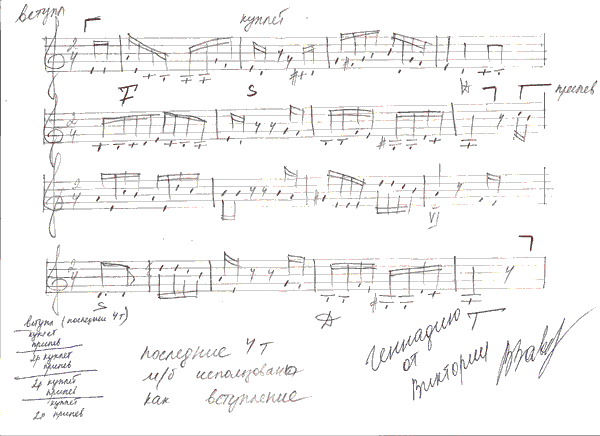 вступл
куплет
2/4
T S D
2/4
припев
2/4
VI
2/4
S D T
вступл (последние 4т)
куплет
припев
2р куплет
припев
2р куплет
припев
куплет
2р припев
последние 4 т
м/б использованы
как вступление
Геннадию
от
Виктории